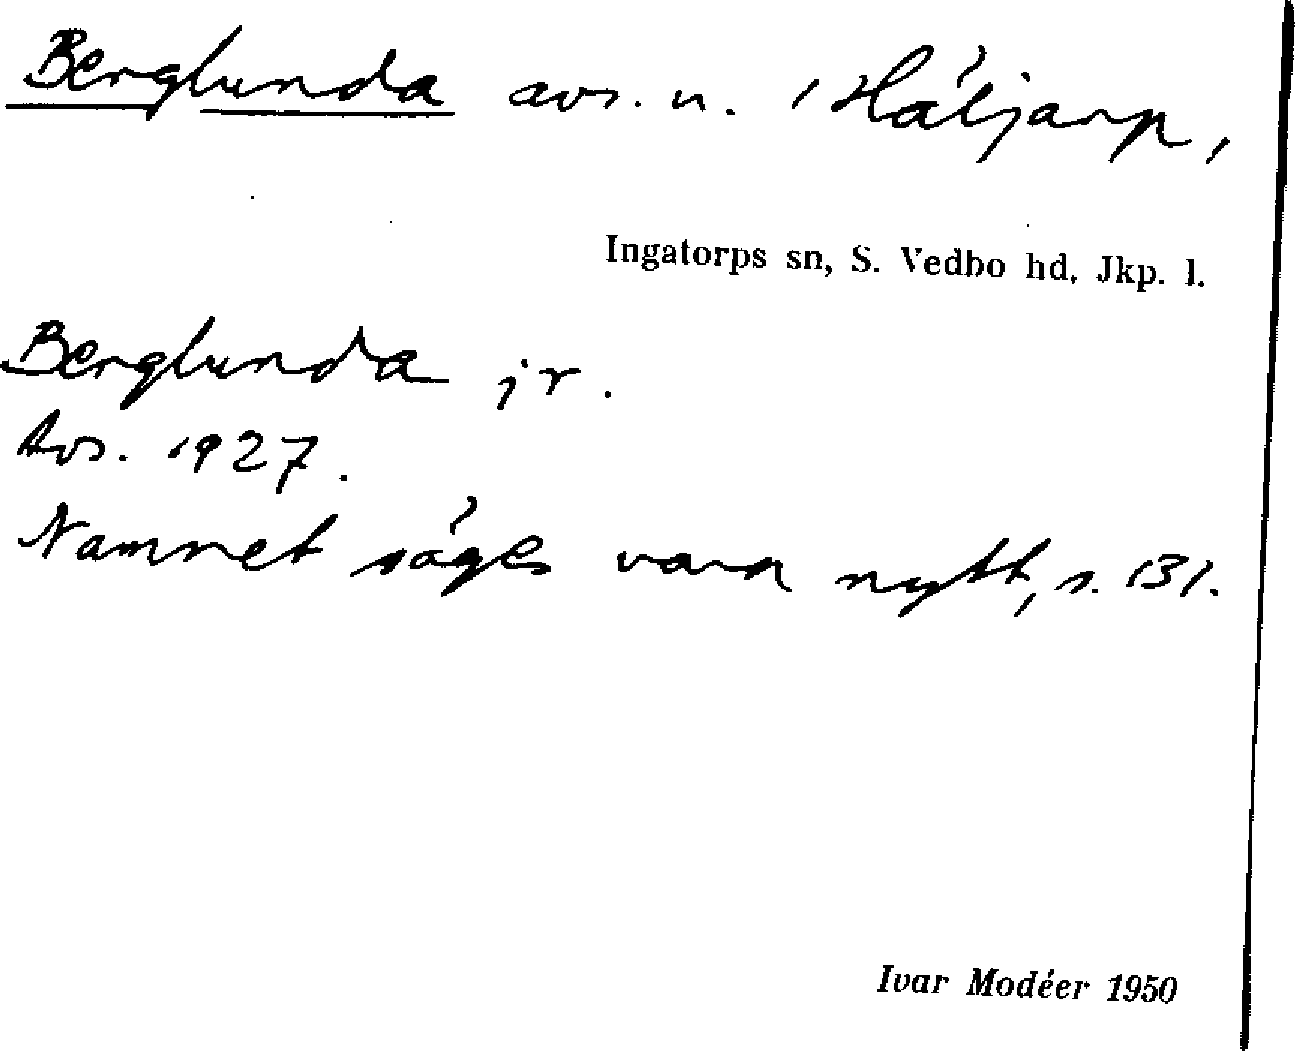 Berglunda avs. u. 1 Håljarp,
Ingatorps sn, S. Vedbo hd, Jkp. l.
Berglunda jr.
Avs. 1927.
Namnet säges vara nytt, s. 131.
Ivar Modéer 1950